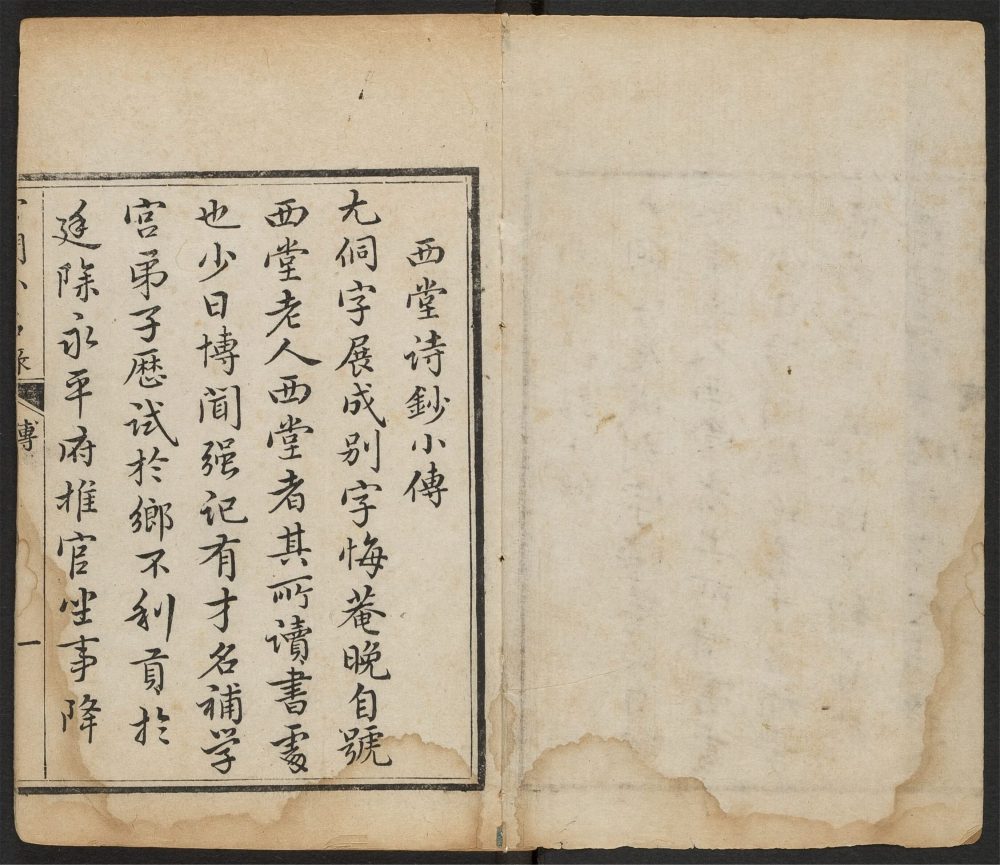 西堂诗鈔小傳
尤侗字展成別字悔菴晚自號
西堂老人西堂者其所讀書處
也少日博聞强记有才名補学
宫弟子歷试於鄉不利貢於
廷除永平府推官坐事降
傳
一